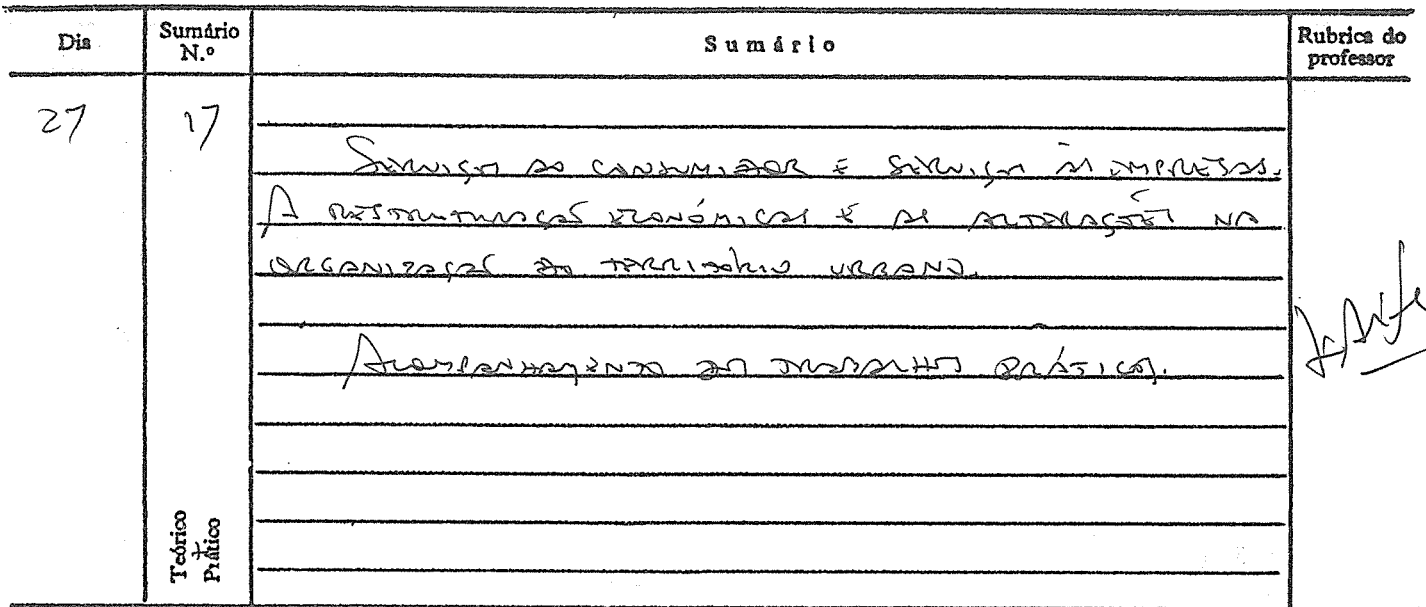 Dia Sumário N.º Sumário Rubrica do professor
27 17
Serviços ao consumidor e serviços às empresas.
A restruturação económica e as alterações na
organização do território urbano.
Acompanhamento dos trabalhos práticos.
Teórico + Prático